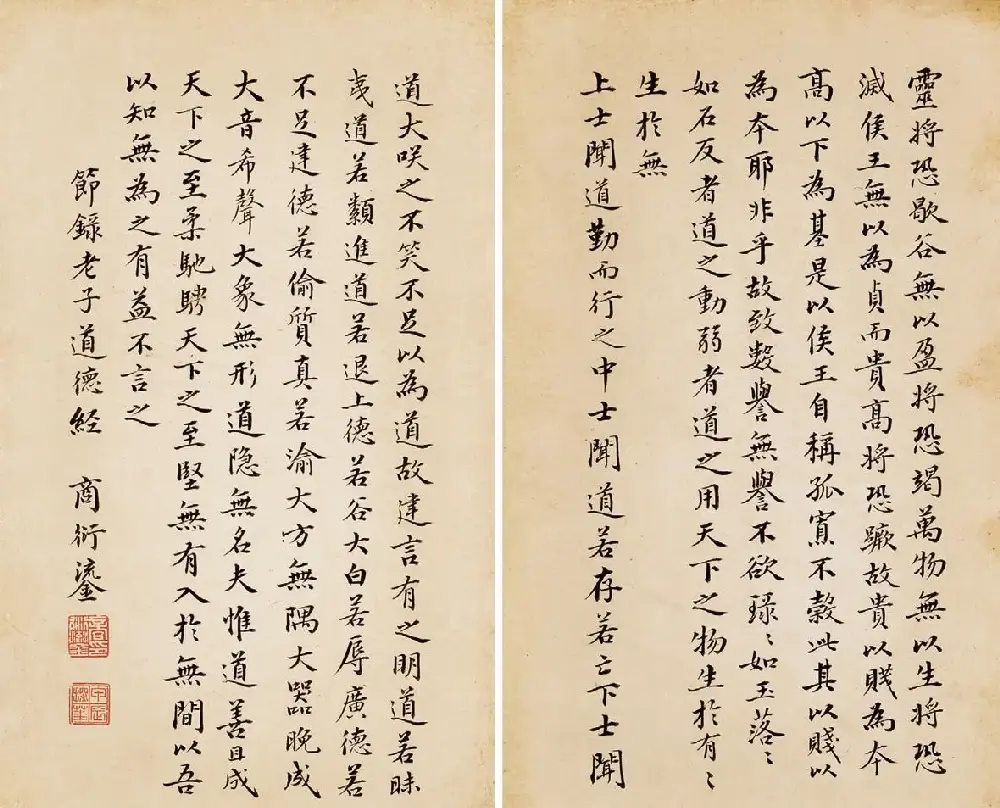 靈將恐歇谷無以盈將恐竭萬物無以生將恐
滅侯王無以為貞而貴高將恐蹶故貴以賤為本
高以下為基是以侯王自稱孤寡不穀此其以賤以
為本耶非乎故致數譽無譽不欲琭〻如玉落〻
如石反者道之動弱者道之用天下之物生於有〻
生於無
上士聞道勤而行之中士聞道若存若亡下士聞
道大咲之不笑不足以為道故建言有之明道若昧
夷道若類進道若退上德若谷大白若辱廣德若
不足建德若偷質真若渝大方無隅大器晚成
大音希聲大象無形道隐無名夫惟道善且成
天下之至柔馳騁天下之至堅無有入於無間以吾
以知無為之有益不言之
節錄老子道德經 商衍鎏